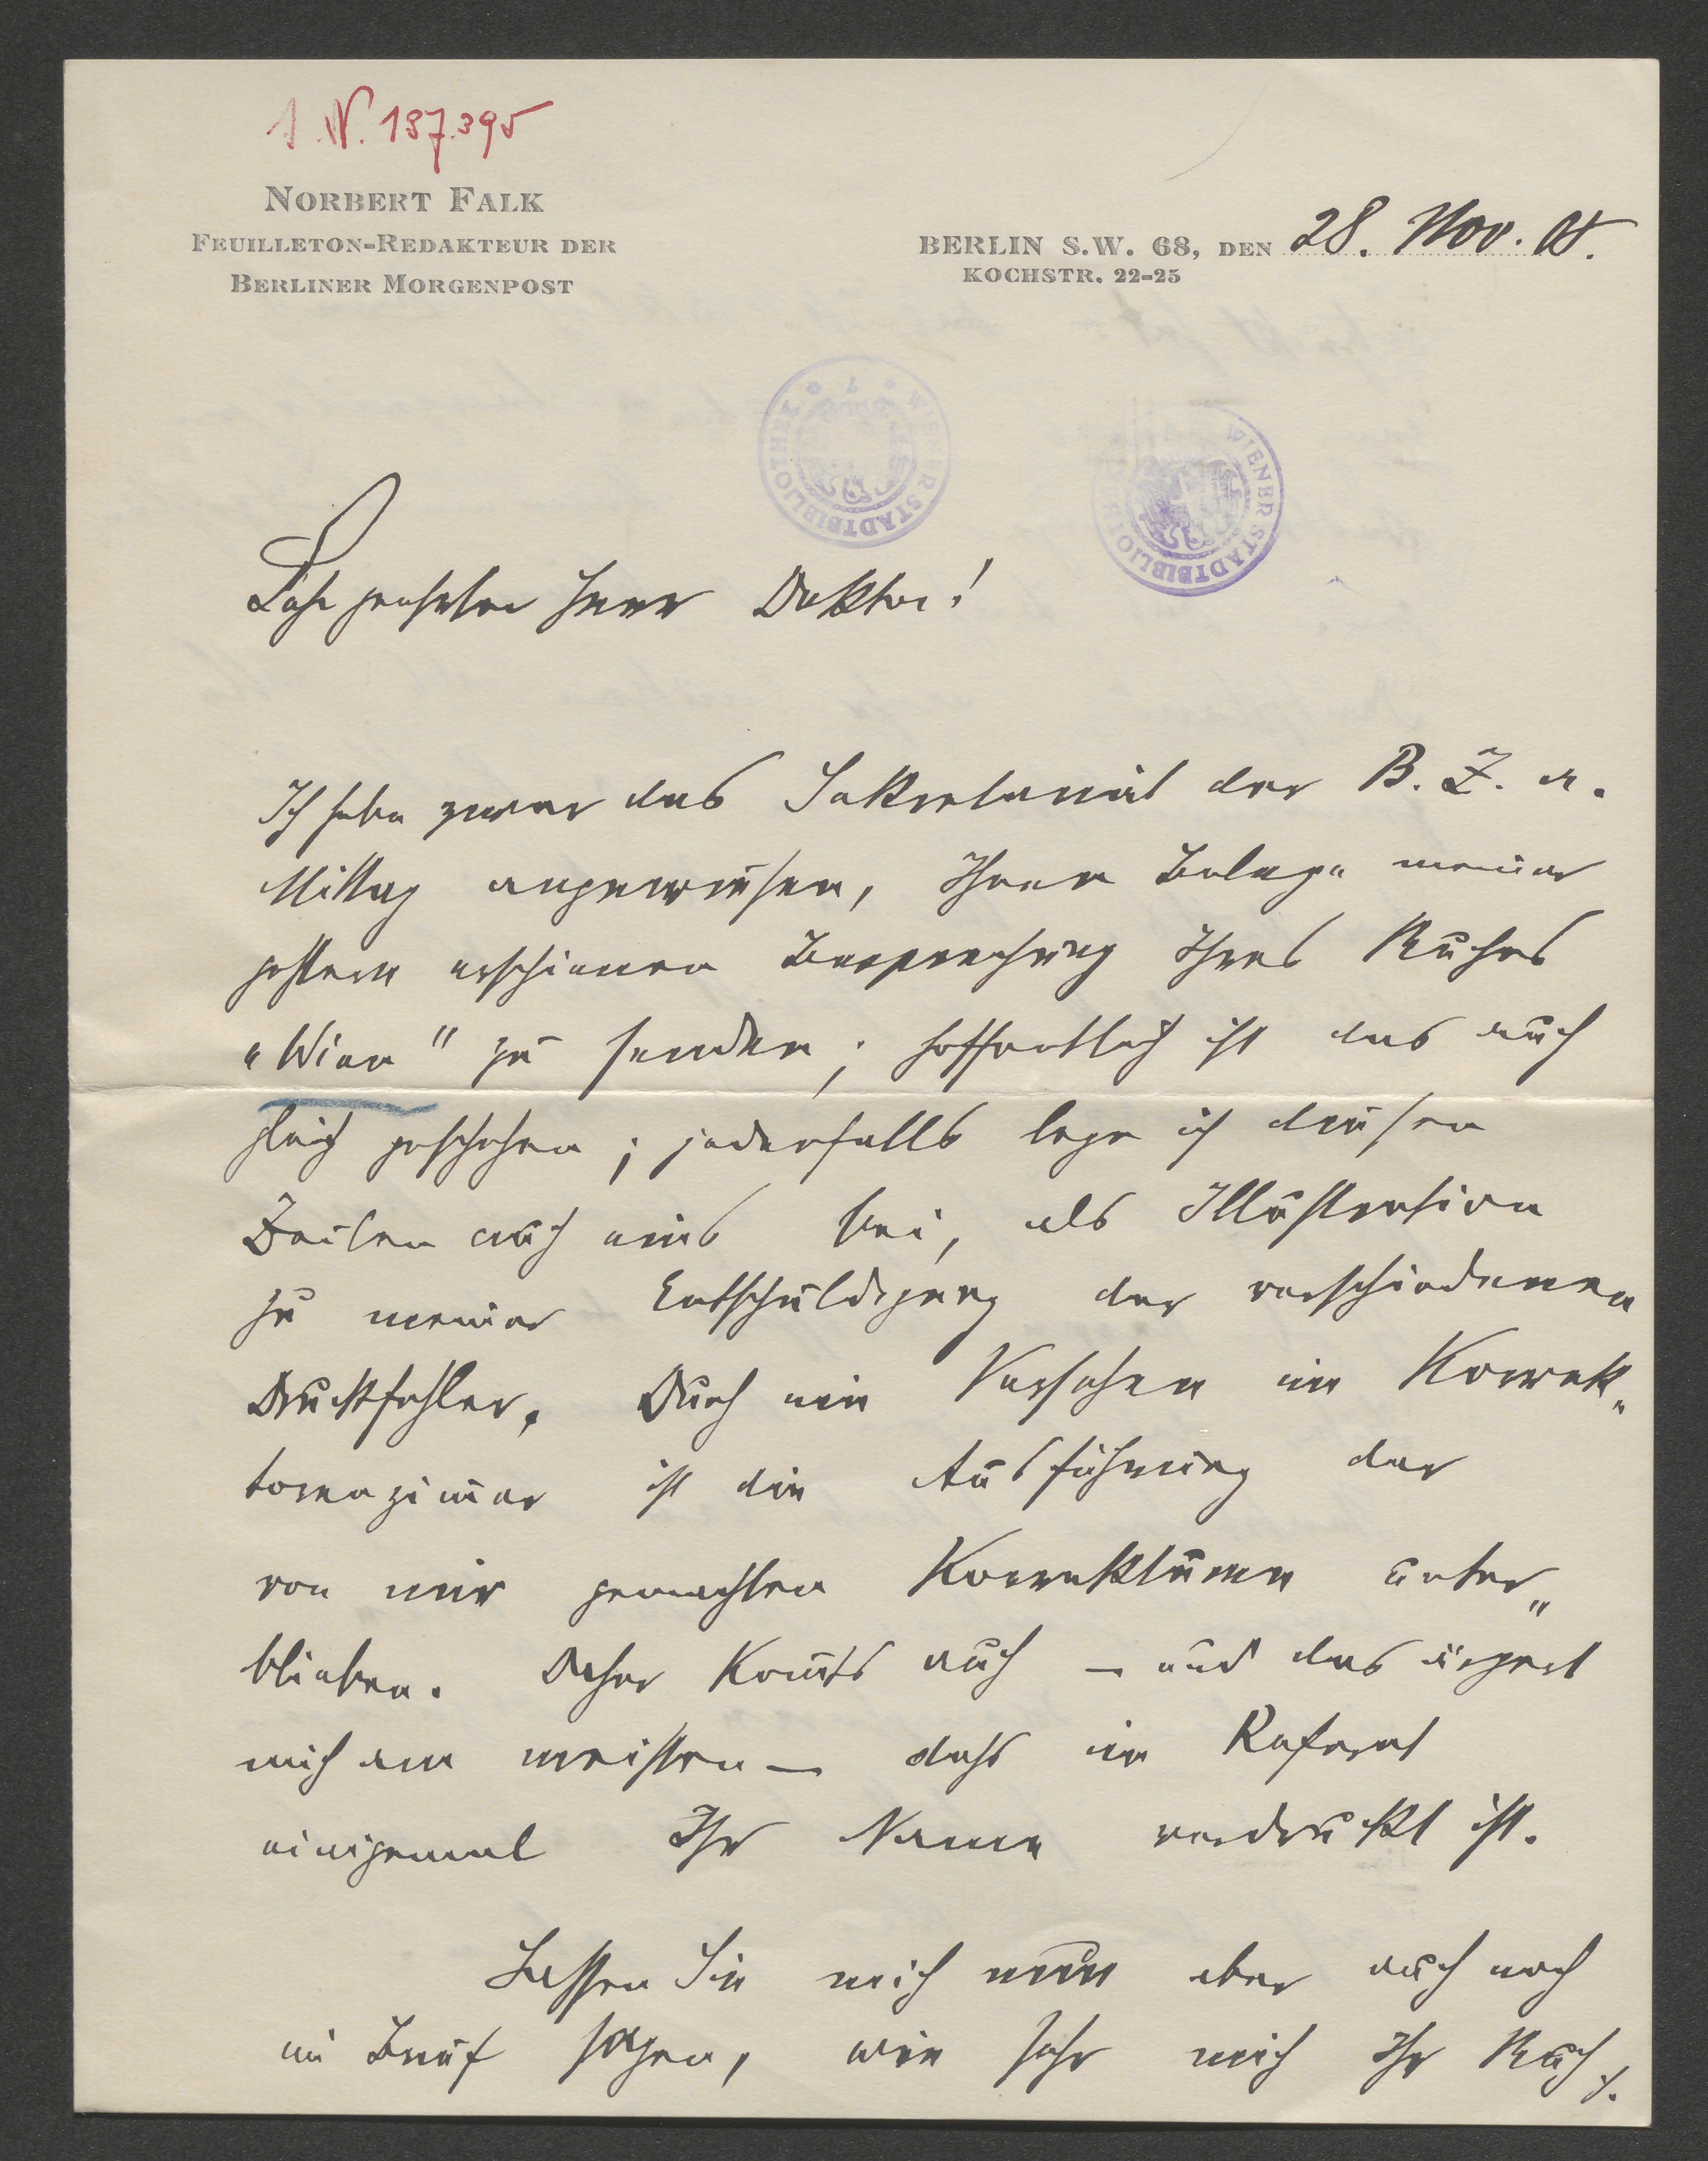 I. N. 137.395
NORBERT FALK
FEUILLETON-REDAKTEUR DER
BERLINER MORGENPOST
BERLIN S.W. 68, DEN 28. Nov. 08.
KOCHSTR. 22-25
WIENER STADTBIBLIOTHEK
WIENER STADTBIBLIOTHEK
Sehr geehrter Herr Doktor!
Ich habe zwar das Sekretariat der B. Z. a.
Mittag angewiesen, Ihnen Belege meiner
gestern erschienen Besprechung Ihres Buches
„Wien" zu senden; hoffentlich ist das auch
gleich geschehen; jedenfalls lege ich diesen
Zeilen auch eins bei, als Illustration
zu meiner Entschuldigung der verschiedenen
Druckfehler. Durch ein Versehen im Korrek-
torenzimmer ist die Ausführung der
von mir gemachten Korrekturen unter-
blieben. Daher kommts auch – und das ärgert
mich am meisten – dass im Referat
einigemal Ihr Name verdruckt ist.
Lassen Sie mich nun aber auch noch
im Brief sagen, wie sehr mich Ihr Buch